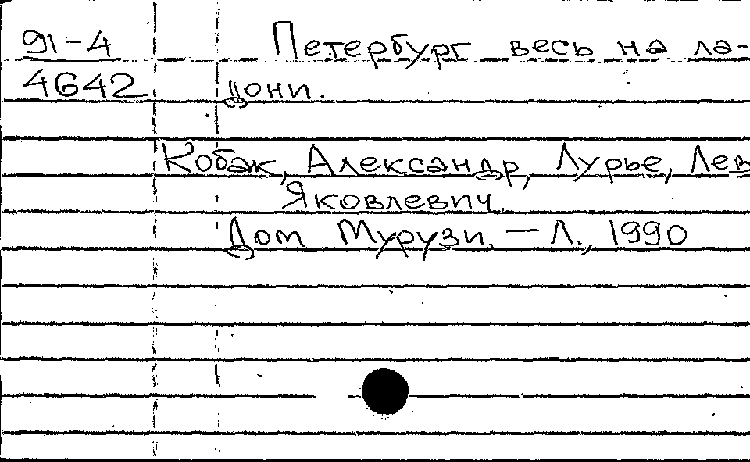 91-4 Петербург весь на ла-
4642 дони.
Кобак, Александр, Лурье, Лев
Яковлевич.
Дом Мурузи. — Л., 1990